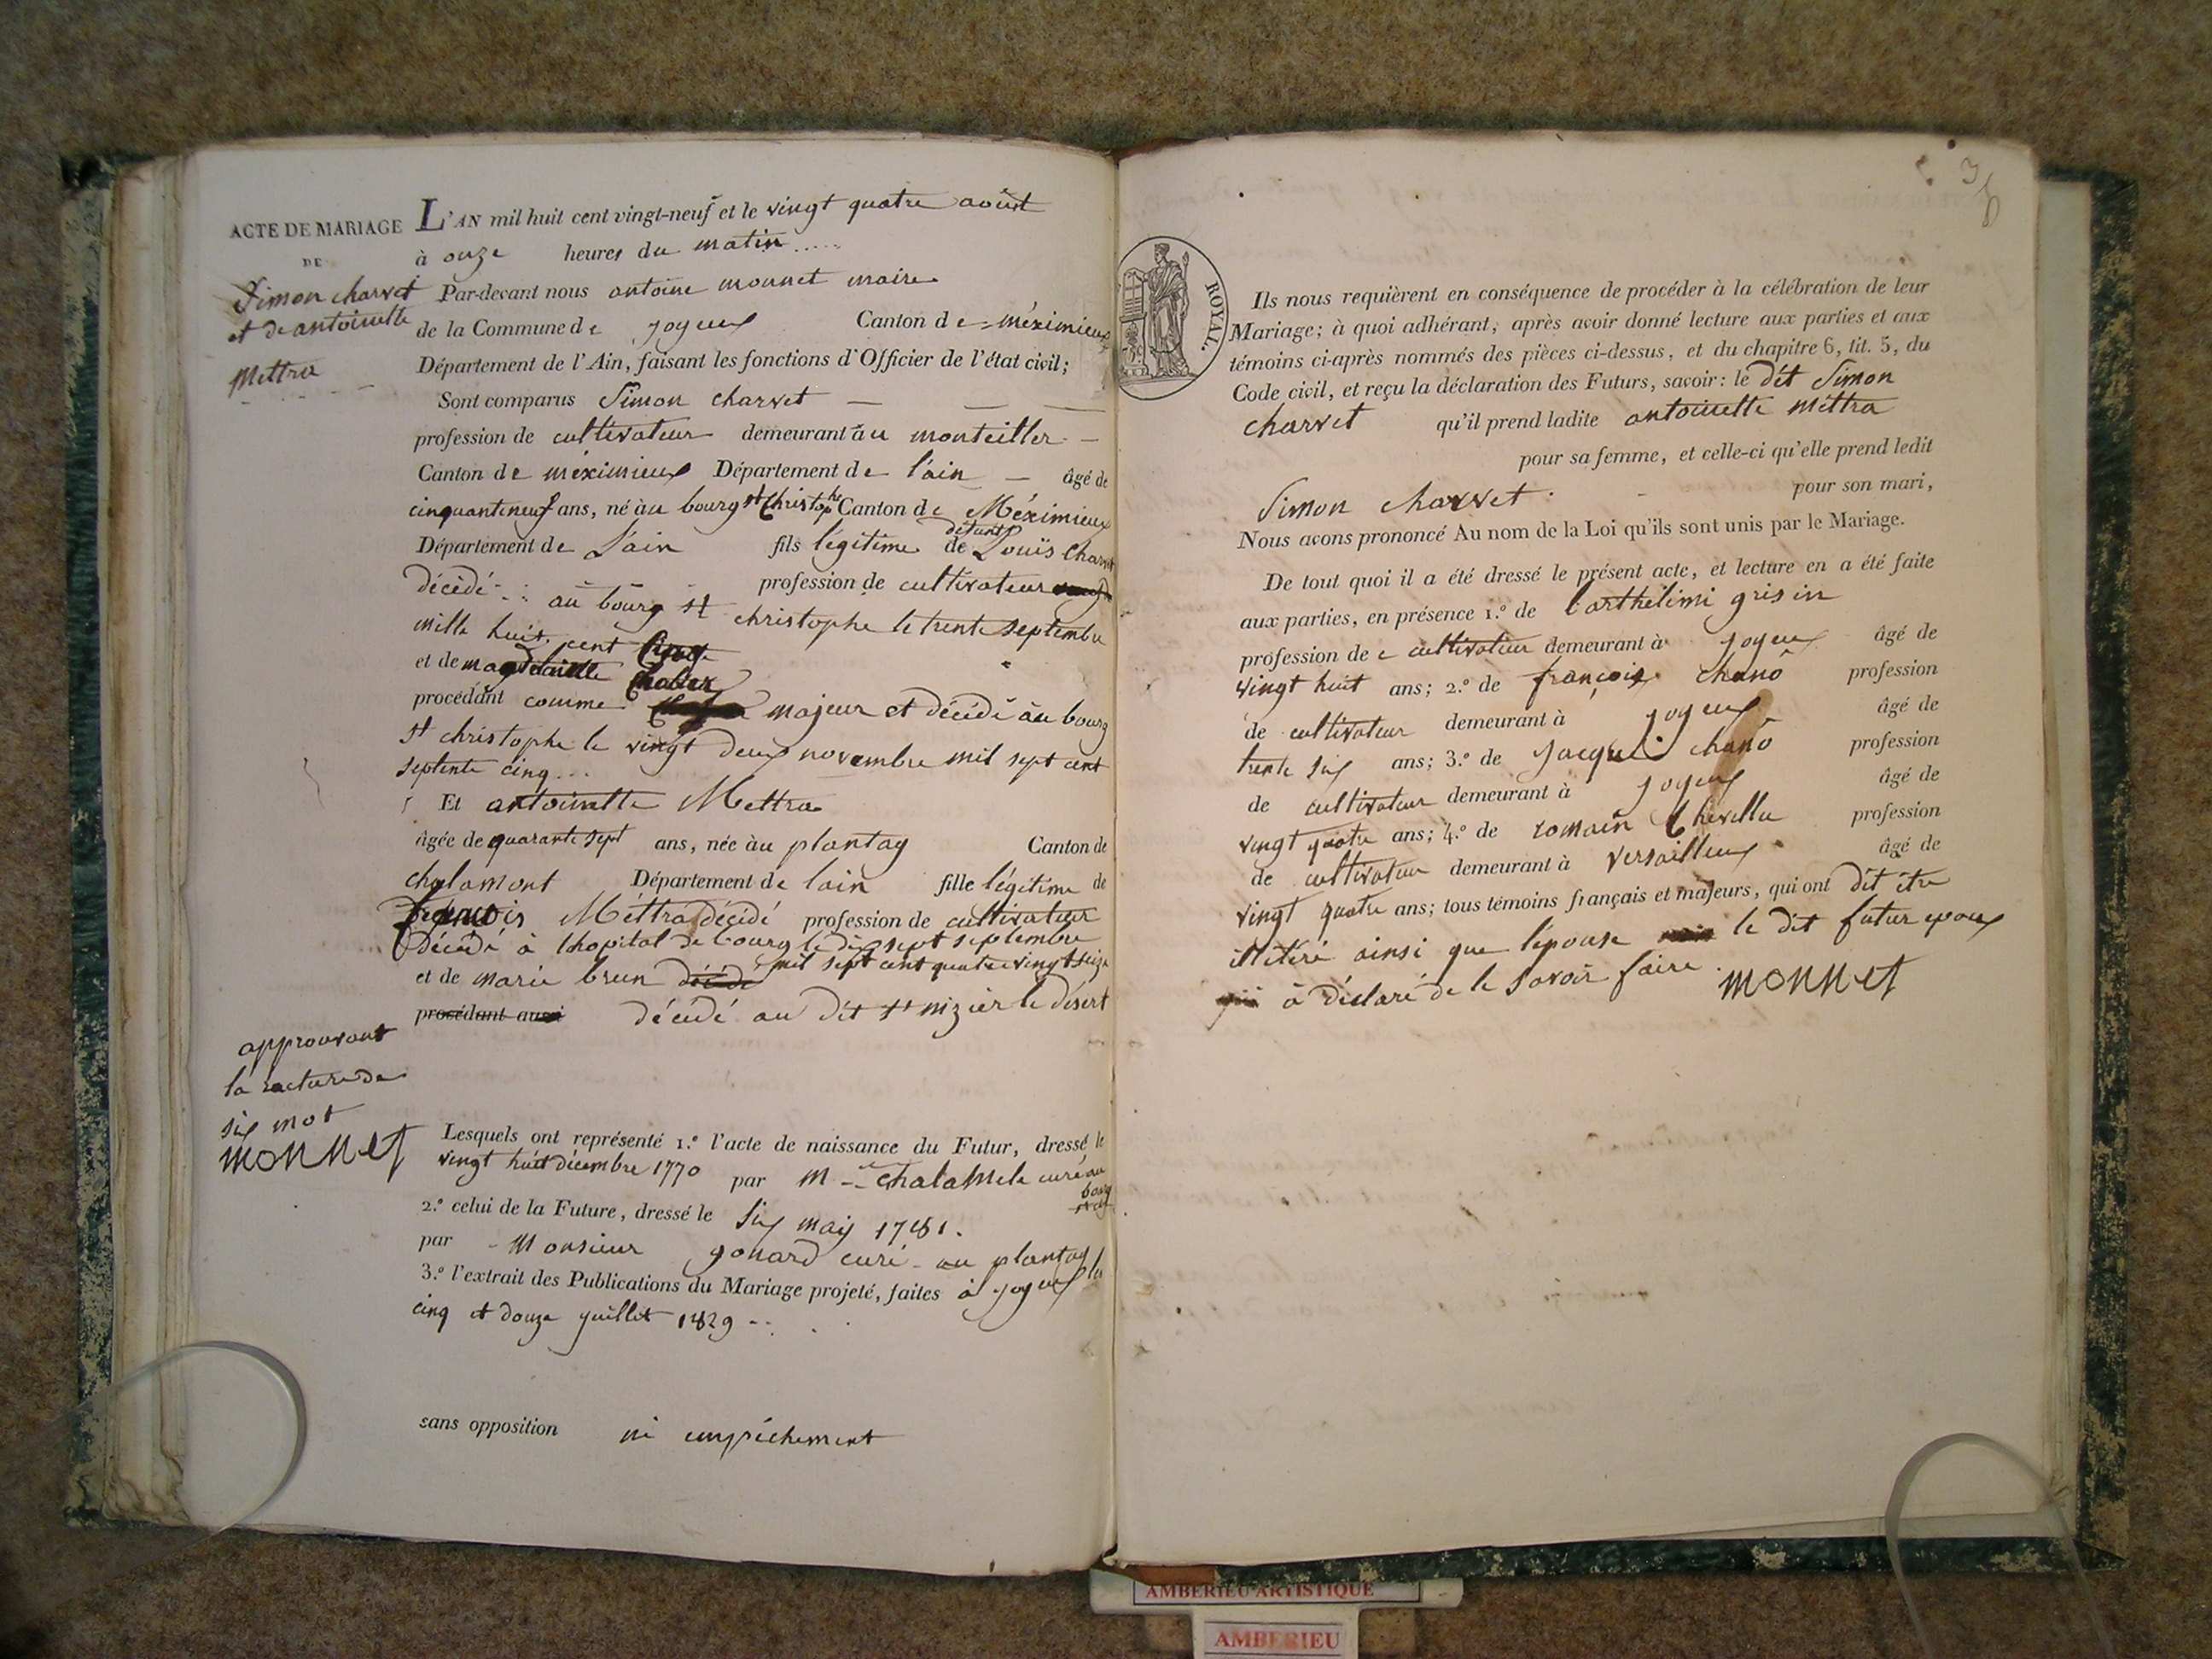 ACTE DE MARIAGE
DE
Simon charvet
et de antoinette
Mettra
L'AN mil huit cent vingt-neuf et le vingt quatre août
à onze heures du matin .....
Par-devant nous antoine monnet maire
de la Commune de joyeux Canton de méximieux
Département de l'Ain, faisant les fonctions d'Officier de l'état civil;
Sont comparus Simon charvet
profession de cultivateur demeurant au monteiller
Canton de méximieux Département de l'ain âgé de
cinquanteneuf ans, né àu bourg st Christophe Canton de Méximieux
Département de L'ain fils légitime de défunt Louïs Charvet
décédé profession de cultivateur
au bourg st christophe le trente septembre
mille huit cent cinq
et de magdelaine
procédant comme majeur et décédé àu bourg
st christophe le vingt deux novembre mil sept cent
septente cinq ...
Et antoinette Mettra
âgée de quarante sept ans, née àu plantay Canton de
chalamont Département de lain fille légitime de
françois Méttra décédé profession de cultivateur
décédé à lhopital de bourg le dix sept septembre
mil sept cent quatre vingt seize
et de marie brun décédé
procédant aussi décédé au dit st nizier le désert
approuvant
la racture de
six mot
monnet
Lesquels ont représenté 1.º l'acte de naissance du Futur, dressé le
vingt huit décembre 1770 par M chalamele curé au
bourg
2.º celui de la Future, dressé le Six maij 1781.
par Monsieur gonard curé au plantay
3.º l'extrait des Publications du Mariage projeté, faites à joyeux le
cinq et douze juillet 1829
sans opposition ni empéchement
ROYAL.
Ils nous requièrent en conséquence de procéder à la célébration de leur
Mariage; à quoi adhérant, après avoir donné lecture aux parties et aux
témoins ci-après nommés des pièces ci-dessus, et du chapitre 6, tit. 5, du
Code civil, et reçu la déclaration des Futurs, savoir: le dit Simon
charvet qu'il prend ladite antoinette méttra
pour sa femme, et celle-ci qu'elle prend ledit
Simon charvet pour son mari,
Nous avons prononcé Au nom de la Loi qu'ils sont unis par le Mariage.
De tout quoi il a été dressé le présent acte, et lecture en a été faite
aux parties, en présence 1.º de barthelimi grisin
profession de cultivateur demeurant à joyeux âgé de
vingt huit ans; 2.º de françois chanô profession
de cultivateur demeurant à joyeux âgé de
trente six ans; 3.º de jacque chanô profession
de cultivateur demeurant à joyeux âgé de
vingt quatre ans; 4.º de romain Chevillu profession
de cultivateur demeurant à versailleux âgé de
vingt quatre ans; tous témoins français et majeurs, qui ont dit étre
illitéré ainsi que lépouse le dit futur epoux
à déclaré de le savoir faire. monnet
AMBERIEU ARTISTIQUE
AMBERIEU